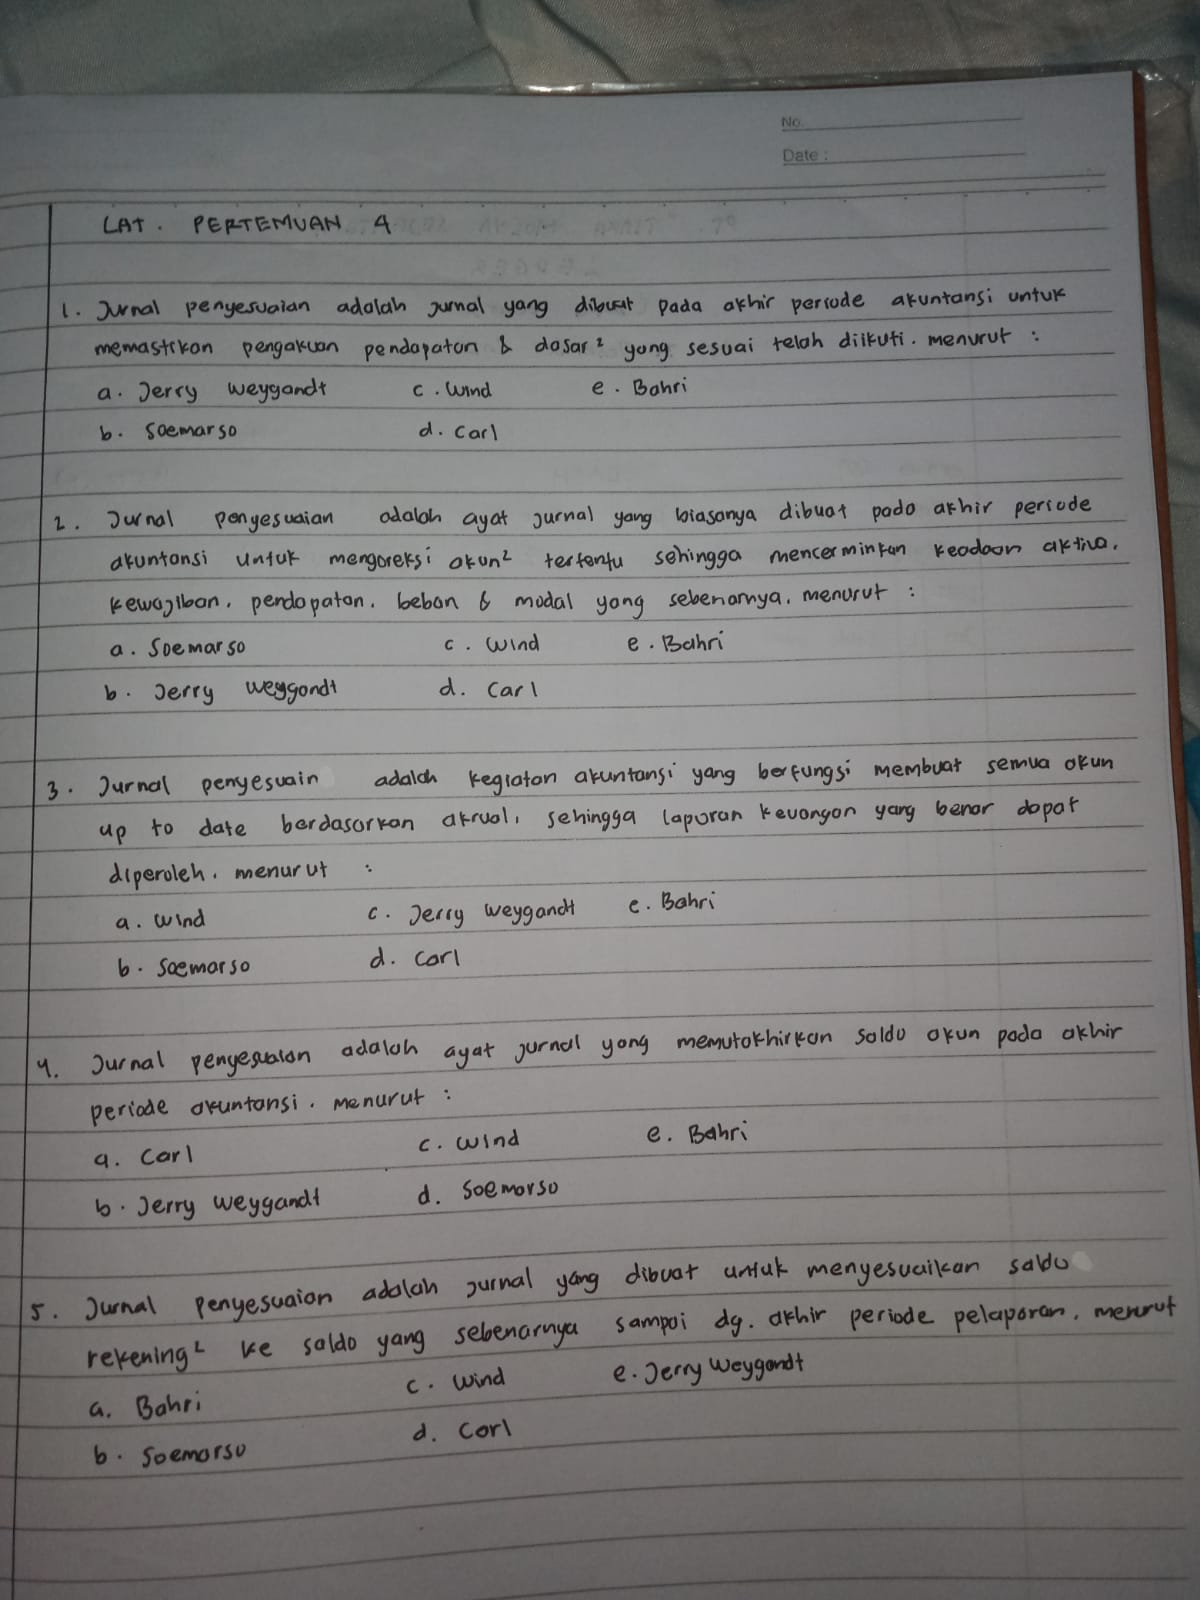 No.
Date :
LAT. PERTEMUAN 4
1. Jurnal penyesuaian adalah jurnal yang dibuat pada akhir periode akuntansi untuk
memastikan pengakuan pendapatan & dasar² yang sesuai telah diikuti. menurut :
a. Jerry Weygandt c. Wind e. Bahri
b. Soemarso d. Carl
2. Jurnal penyesuaian adalah ayat jurnal yang biasanya dibuat pada akhir periode
akuntansi untuk mengoreksi akun² tertentu sehingga mencerminkan keadaan aktiva,
kewajiban, pendapatan, beban & modal yang sebenarnya. menurut :
a. Soemarso c. Wind e. Bahri
b. Jerry Weygandt d. Carl
3. Jurnal penyesuain adalah kegiatan akuntansi yang berfungsi membuat semua akun
up to date berdasarkan akrual, sehingga laporan keuangan yang benar dapat
diperoleh. menurut :
a. Wind c. Jerry Weygandt e. Bahri
b. Soemarso d. Carl
4. Jurnal penyesuaian adalah ayat jurnal yang memutakhirkan saldo akun pada akhir
periode akuntansi. menurut :
a. Carl c. Wind e. Bahri
b. Jerry Weygandt d. Soemarso
5. Jurnal penyesuaian adalah jurnal yang dibuat untuk menyesuaikan saldo
rekening² ke saldo yang sebenarnya sampai dg. akhir periode pelaporan. menurut
a. Bahri c. Wind e. Jerry Weygandt
b. Soemarso d. Carl